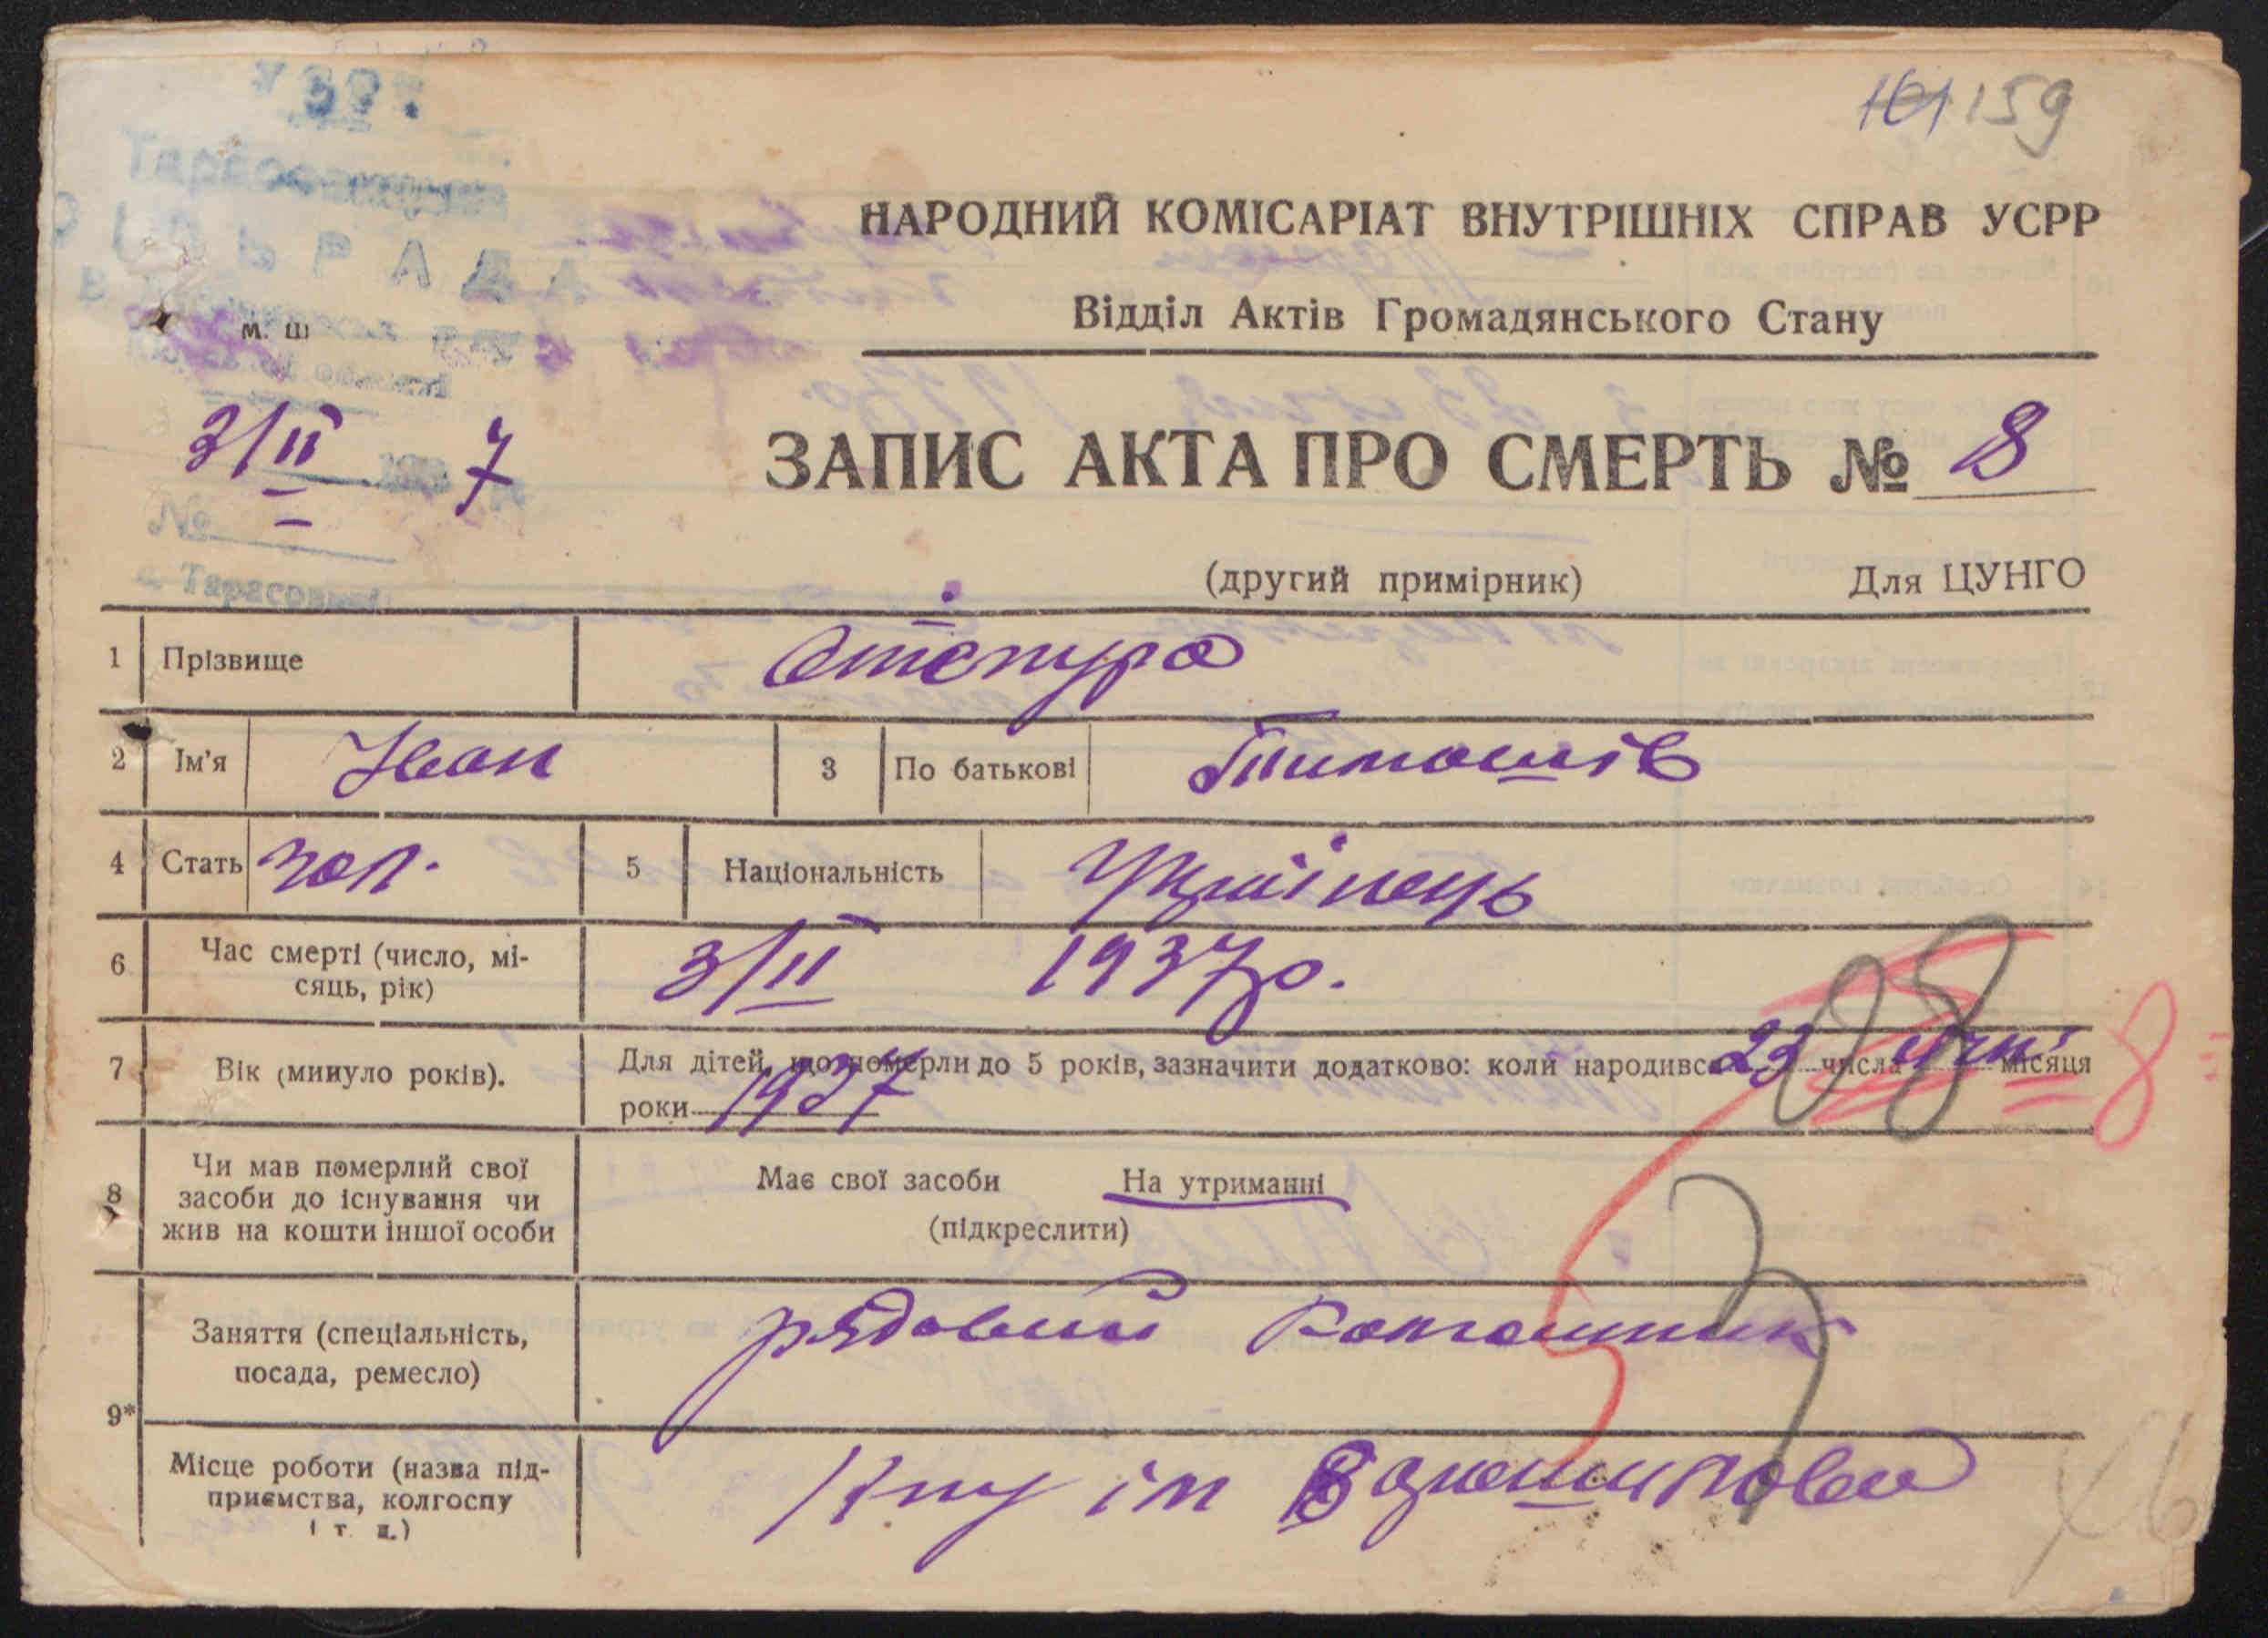 161 159
НАРОДНИЙ КОМІСАРІАТ ВНУТРІШНІХ СПРАВ УСРР
Відділ Актів Громадянського Стану
м. Ш
3/II 193 7
ЗАПИС АКТА ПРО СМЕРТЬ № 8
№
с. Тарасовка
(другий примірник) Для ЦУНГО
1 Прізвище
2 Ім'я Іван 3 По батькові Тимошів
4 Стать чол. 5 Національність Українець
6 Час смерті (число, мі-
сяць, рік) 3/II 1937р.
7 Вік (минуло років). Для дітей, що померли до 5 років, зазначити додатково: коли народився 23 числа січні місяця
роки 1937
8 Чи мав померлий свої
засоби до існування чи
жив на кошти іншої особи
Має свої засоби На утриманні
(підкреслити)
9*
Заняття (спеціальність,
посада, ремесло) рядовий колгошник
Місце роботи (назва під-
приємства, колгоспу
і т. п.) ім Ворошилова